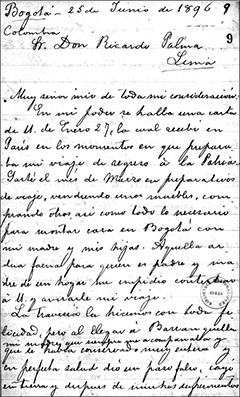 Bogotá - 25 de Junio de 1896 9
Colombia 9
Sr. Don Ricardo Palma
Lima
Muy señor mio de toda mi consideración:
En mi poder se halla una carta
de U. de Enero 27, la cual recibí en
París en los momentos en que prepara-
ba mi viaje de regreso á la Patria.
Gasté el més de Marzo en preparativos
de viaje, vendiendo unos muebles, com-
prando otros, así como todo lo necesario
para montar casa en Bogotá con
mi madre y mis hijas. Aquella ar-
dua faena para quien es padre y ma-
dre de un hogar me impidió contestar
á U. y anunciarle mi viaje.
La travesía la hicimos con toda fe-
licidad, pero al llegar á Barranquilla
mi madre, que siempre me acompañaba y
que se había conservado muy entera y
en perfecta salud dió un paso falso, cayó
en tierra y despues de muchos sufrimientos